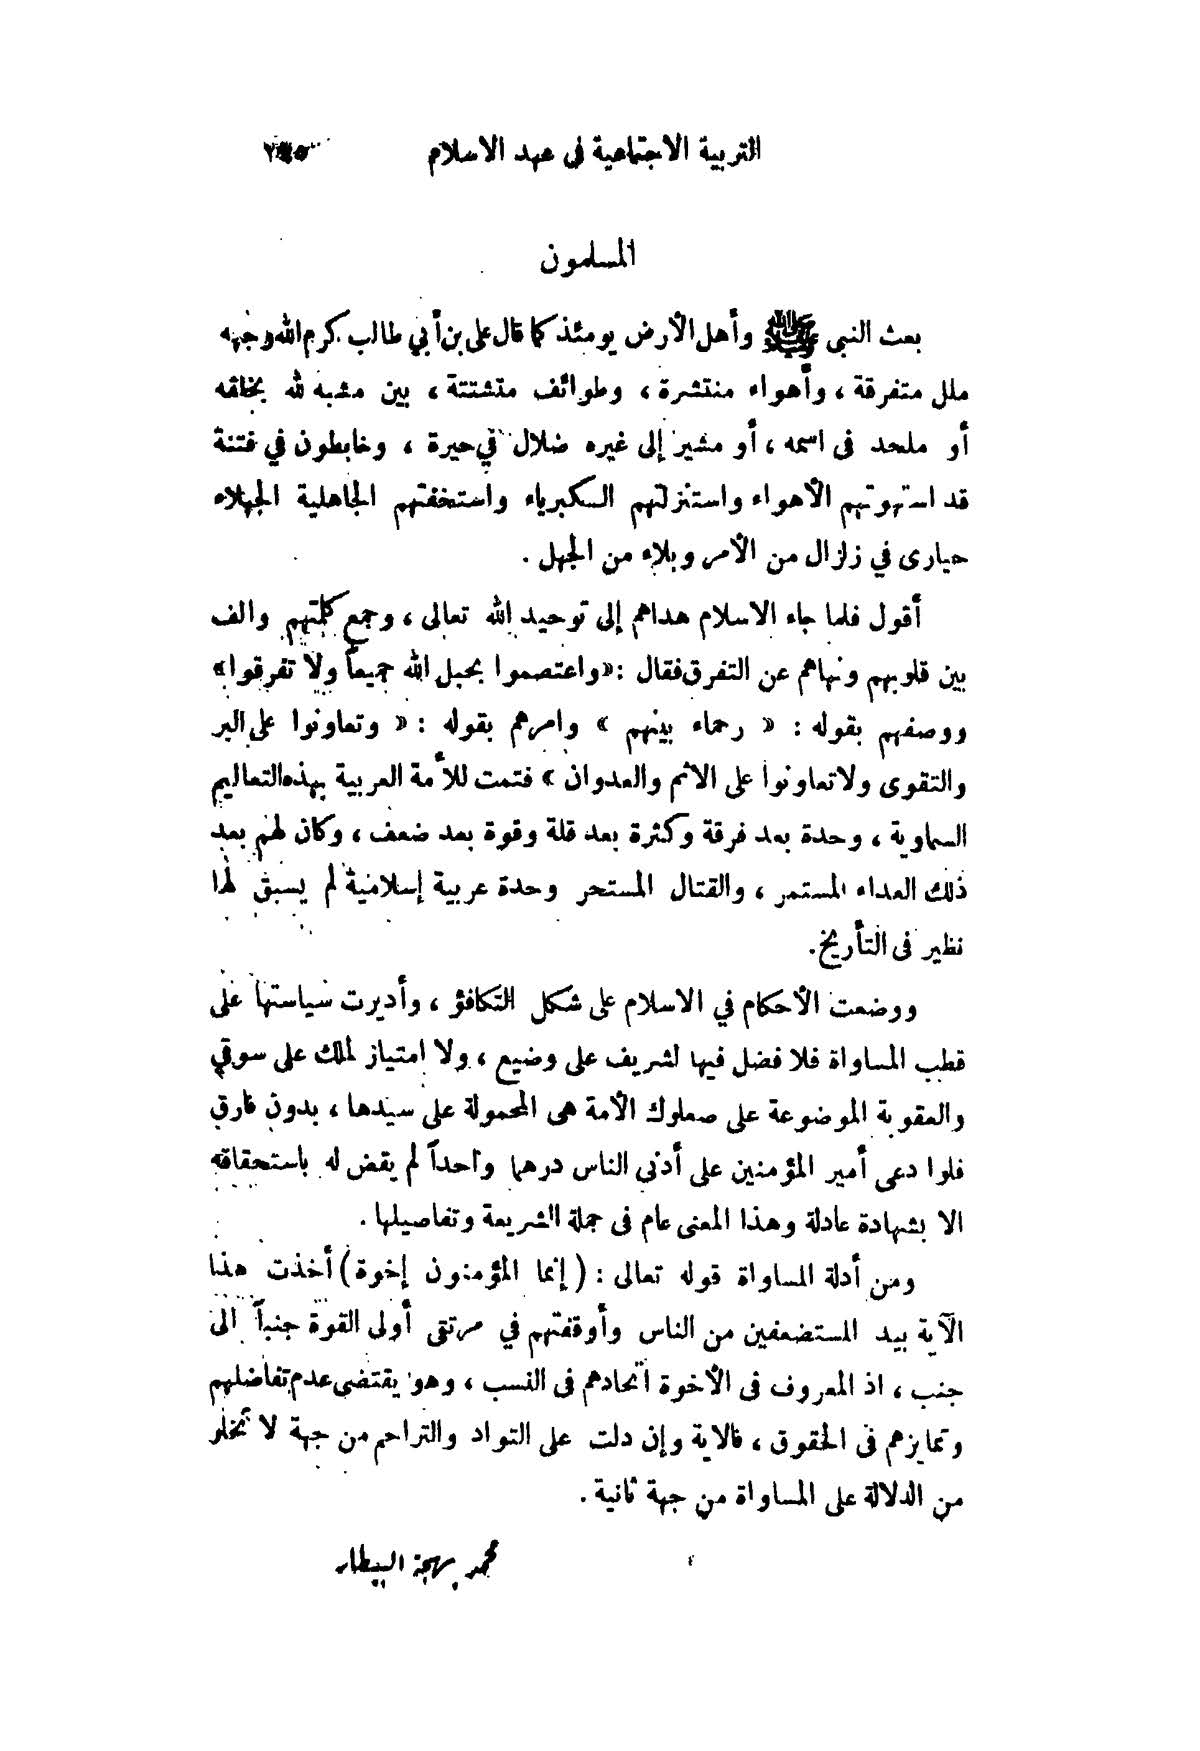 التربية الاجتماعية في عهد الاسلام
المسلمون
بعث النبي ﷺ وأهل الأرض يومئذ كما قال علي بن أبي طالب كرم الله وجهه
ملل متفرقة ، وأهواء منتشرة ، وطوائف متشتتة ، بين مشبه لله بخلقه
أو ملحد في اسمه ، أو مشير إلى غيره ضلال في حيرة ، وخابطون في فتنة
قد استهوتهم الأهواء واستنزلتهم الكبرياء واستخفتهم الجاهلية الجهلاء
حيارى في زلزال من الأمر وبلاء من الجهل .
أقول فلما جاء الاسلام هداهم إلى توحيد الله تعالى ، وجمع كلمتهم والف
بين قلوبهم ونهاهم عن التفرق فقال : «واعتصموا بحبل الله جميعاً ولا تفرقوا»
ووصفهم بقوله : « رحماء بينهم » وامرهم بقوله : « وتعاونوا على البر
والتقوى ولا تعاونوا على الاثم والعدوان » فتمت للأمة العربية بهذه التعاليم
السماوية ، وحدة بعد فرقة وكثرة بعد قلة وقوة بعد ضعف ، وكان لهم بعد
ذلك العداء المستمر ، والقتال المستحر وحدة عربية إسلامية لم يسبق لها
نظير في التأريخ .
ووضعت الأحكام في الاسلام على شكل التكافؤ ، وأديرت سياستها على
قطب المساواة فلا فضل فيها لشريف على وضيع ، ولا امتياز لملك على سوقي
والعقوبة الموضوعة على صعلوك الأمة هي المحمولة على سيدها ، بدون فارق
فلوا دعى أمير المؤمنين على أدنى الناس درهما واحداً لم يقض له باستحقاقه
الا بشهادة عادلة وهذا المعنى عام في جملة الشريعة وتفاصيلها .
ومن أدلة المساواة قوله تعالى : ( إنما المؤمنون إخوة ) أخذت هذا
الآية بيد المستضعفين من الناس وأوقفتهم في مرتقى أولى القوة جنباً الى
جنب ، اذ المعروف في الأخوة اتحادهم في النسب ، وهو يقتضي عدم تفاضلهم
وتمايزهم في الحقوق ، فالاية وإن دلت على التواد والتراحم من جهة لا تخلو
من الدلالة على المساواة من جهة ثانية .
محمد بهجة البيطار